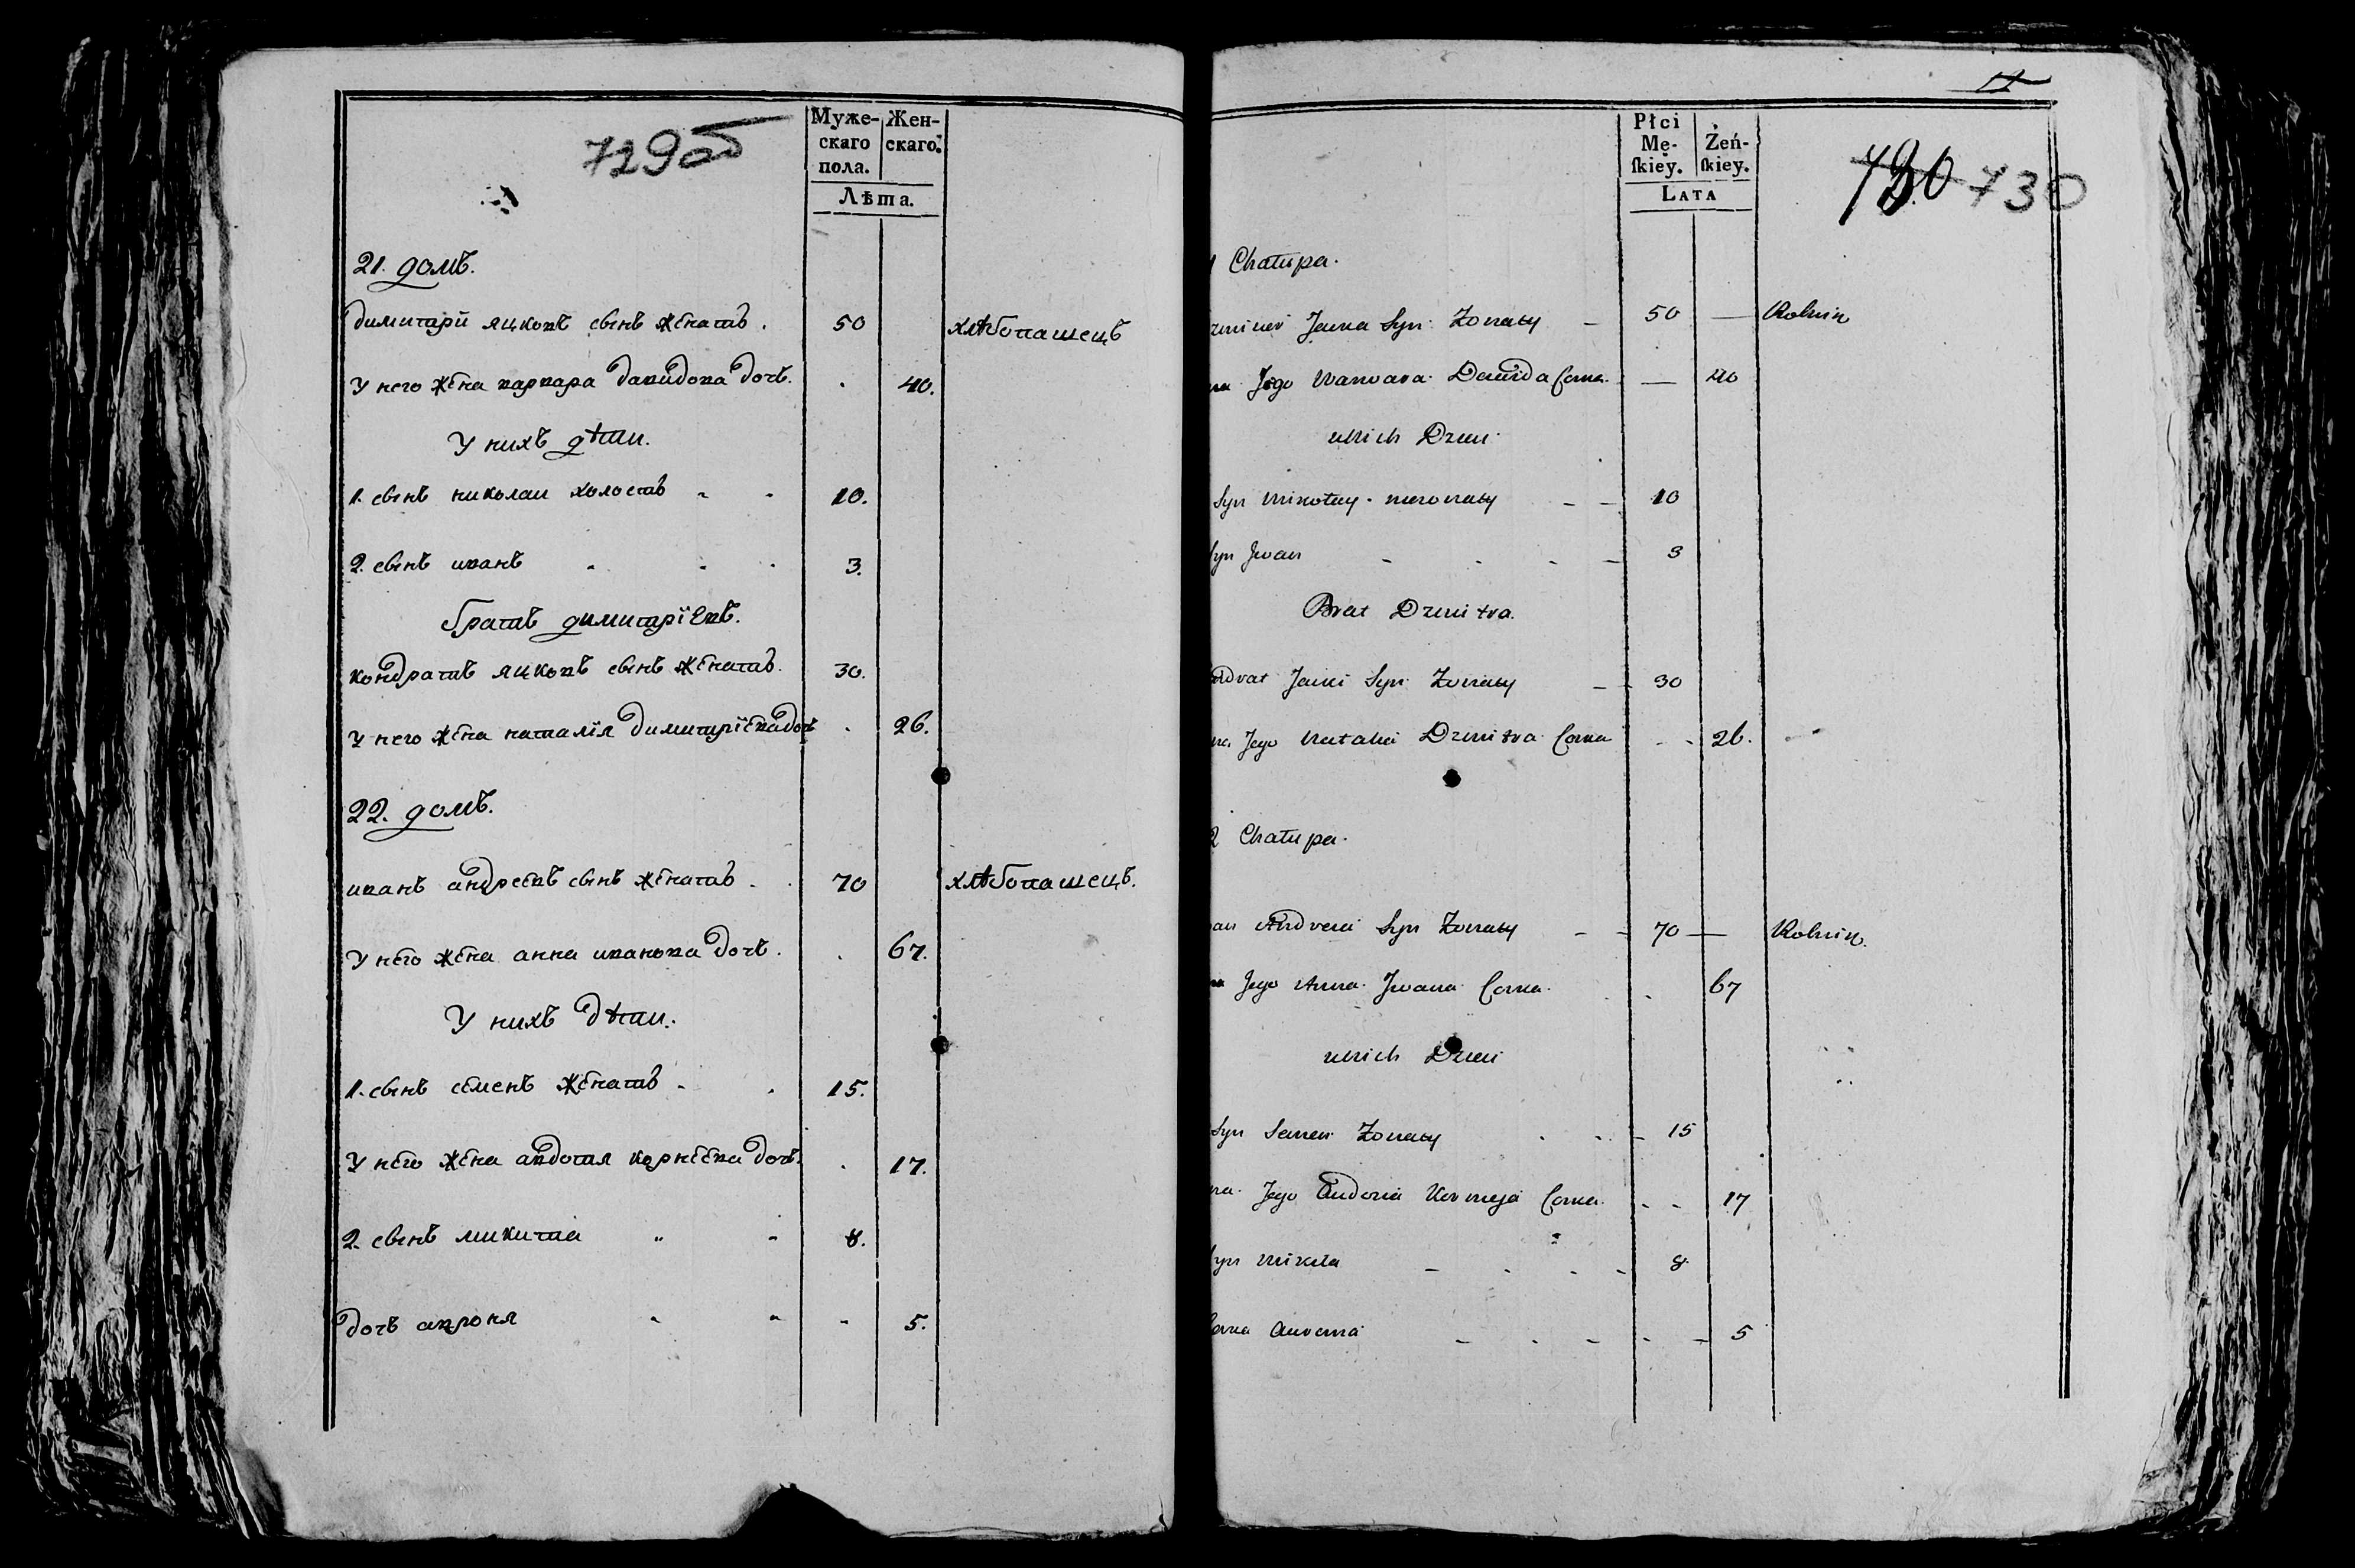 729об
Муже- Жен-
скаго скаго.
пола.
Лѣта.
21. домъ.
димитрїй яцковъ сынъ женатъ. 50 хлѣбопашецъ
У него жена варвара давидова дочь. 40.
У нихъ дѣти.
1. сынъ николай холостъ 10.
2. сынъ иванъ 3.
братъ димитрїевъ.
кондратъ яцковъ сынъ женатъ. 30.
У него жена наталїя димитрїева дочь 26.
22. домъ.
иванъ андреевъ сынъ женатъ. 70 хлѣбопашецъ.
У него жена анна иванова дочь. 67.
У нихъ дѣти.
1. сынъ семенъ женатъ 15.
У него жена авдотия корнеева дочь. 17.
2. сынъ микита 8.
дочь апроня 5.
Płci
Mę- Żeń-
ſkiey. ſkiey.
LATA
730 730
Chałupa.
Jacka Syn Zonaty 50 — Rolnik
Jego Warwara Dawida Corka. — 40
u nich Dzieci
Syn Mikołay niezonaty 10
Syn Jwan 3
Brat Dzmitra.
Jacki Syn Zonaty 30
Jego Natalia Dzmitra Corka 26.
2 Chałupa.
Andreia Syn Zonaty 70 — Rolnik.
Jego Anna Jwana Corka. 67
u nich Dzieci
Syn Semen Zonaty 15
Jego Audocia Korneja Corka. 17
Syn Mikita 8.
5